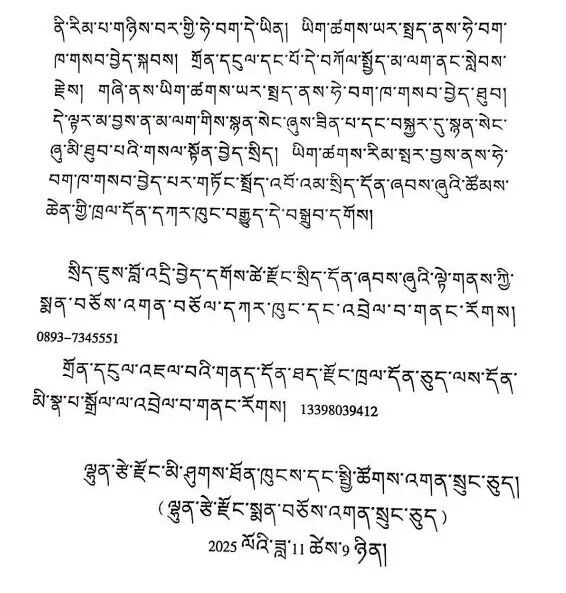 ནི་རིམ་པ་གཉིས་བར་གྱི་ཧེ་བག་དེ་ཡིན། ཡིག་ཚགས་ཡར་སྤྲད་ནས་ཧེ་བག་
ཁ་གསབ་བྱེད་སྐབས། གྲོན་དངུལ་དང་པོ་དེ་བཀོལ་སྤྱོད་མ་ལག་ནང་སླེབས་
རྗེས། གཞི་ནས་ཡིག་ཚགས་ཡར་སྤྲད་ནས་ཧེ་བག་ཁ་གསབ་བྱེད་ཐུབ།
དེ་ལྟར་མ་བྱས་ན་མ་ལག་གིས་སྙན་སེང་ཞུས་ཟིན་པ་དང་བསྐྱར་དུ་སྙན་སེང་
ཞུ་མི་ཐུབ་པའི་གསལ་སྟོན་བྱེད་སྲིད། ཡིག་ཚགས་རིམ་སྤར་བྱས་ནས་ཧེ་
བག་ཁ་གསབ་བྱེད་པར་གཏོང་སྤྲོད་འབོ་འམ་སྲིད་དོན་ཞབས་ཞུའི་ཚོམས་
ཆེན་གྱི་ཁྲལ་དོན་དཀར་ཁུང་བརྒྱུད་དེ་བསྒྲུབ་དགོས།
སྲིད་ཇུས་བློ་འདྲི་བྱེད་དགོས་ཚེ་རྫོང་སྲིད་དོན་ཞབས་ཞུའི་ལྟེ་གནས་ཀྱི་
སྨན་བཅོས་འགན་བཅོལ་དཀར་ཁུང་དང་འབྲེལ་བ་གནང་རོགས།
0893-7345551
གྲོན་དངུལ་འཇལ་བའི་གནད་དོན་ཐད་རྫོང་ཁྲལ་དོན་ཅུད་ལས་དོན་
མི་སྣ་པ་སྒྲོལ་ལ་འབྲེལ་བ་གནང་རོགས། 13398039412
ལྷུན་རྩེ་རྫོང་མི་ཤུགས་ཐོན་ཁུངས་དང་སྤྱི་ཚོགས་འགན་སྲུང་ཅུད།
(ལྷུན་རྩེ་རྫོང་སྨན་བཅོས་འགན་སྲུང་ཅུད)
2025 ལོའི་ཟླ་11 ཚེས་9 ཉིན།